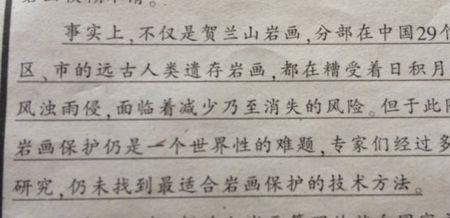 事实上，不仅是贺兰山岩画，分部在中国29个
区、市的远古人类遗存岩画，都在糟受着日积月
风浊雨侵，面临着减少乃至消失的风险。但于此
岩画保护仍是一个世界性的难题，专家们经过多
研究，仍未找到最适合岩画保护的技术方法。